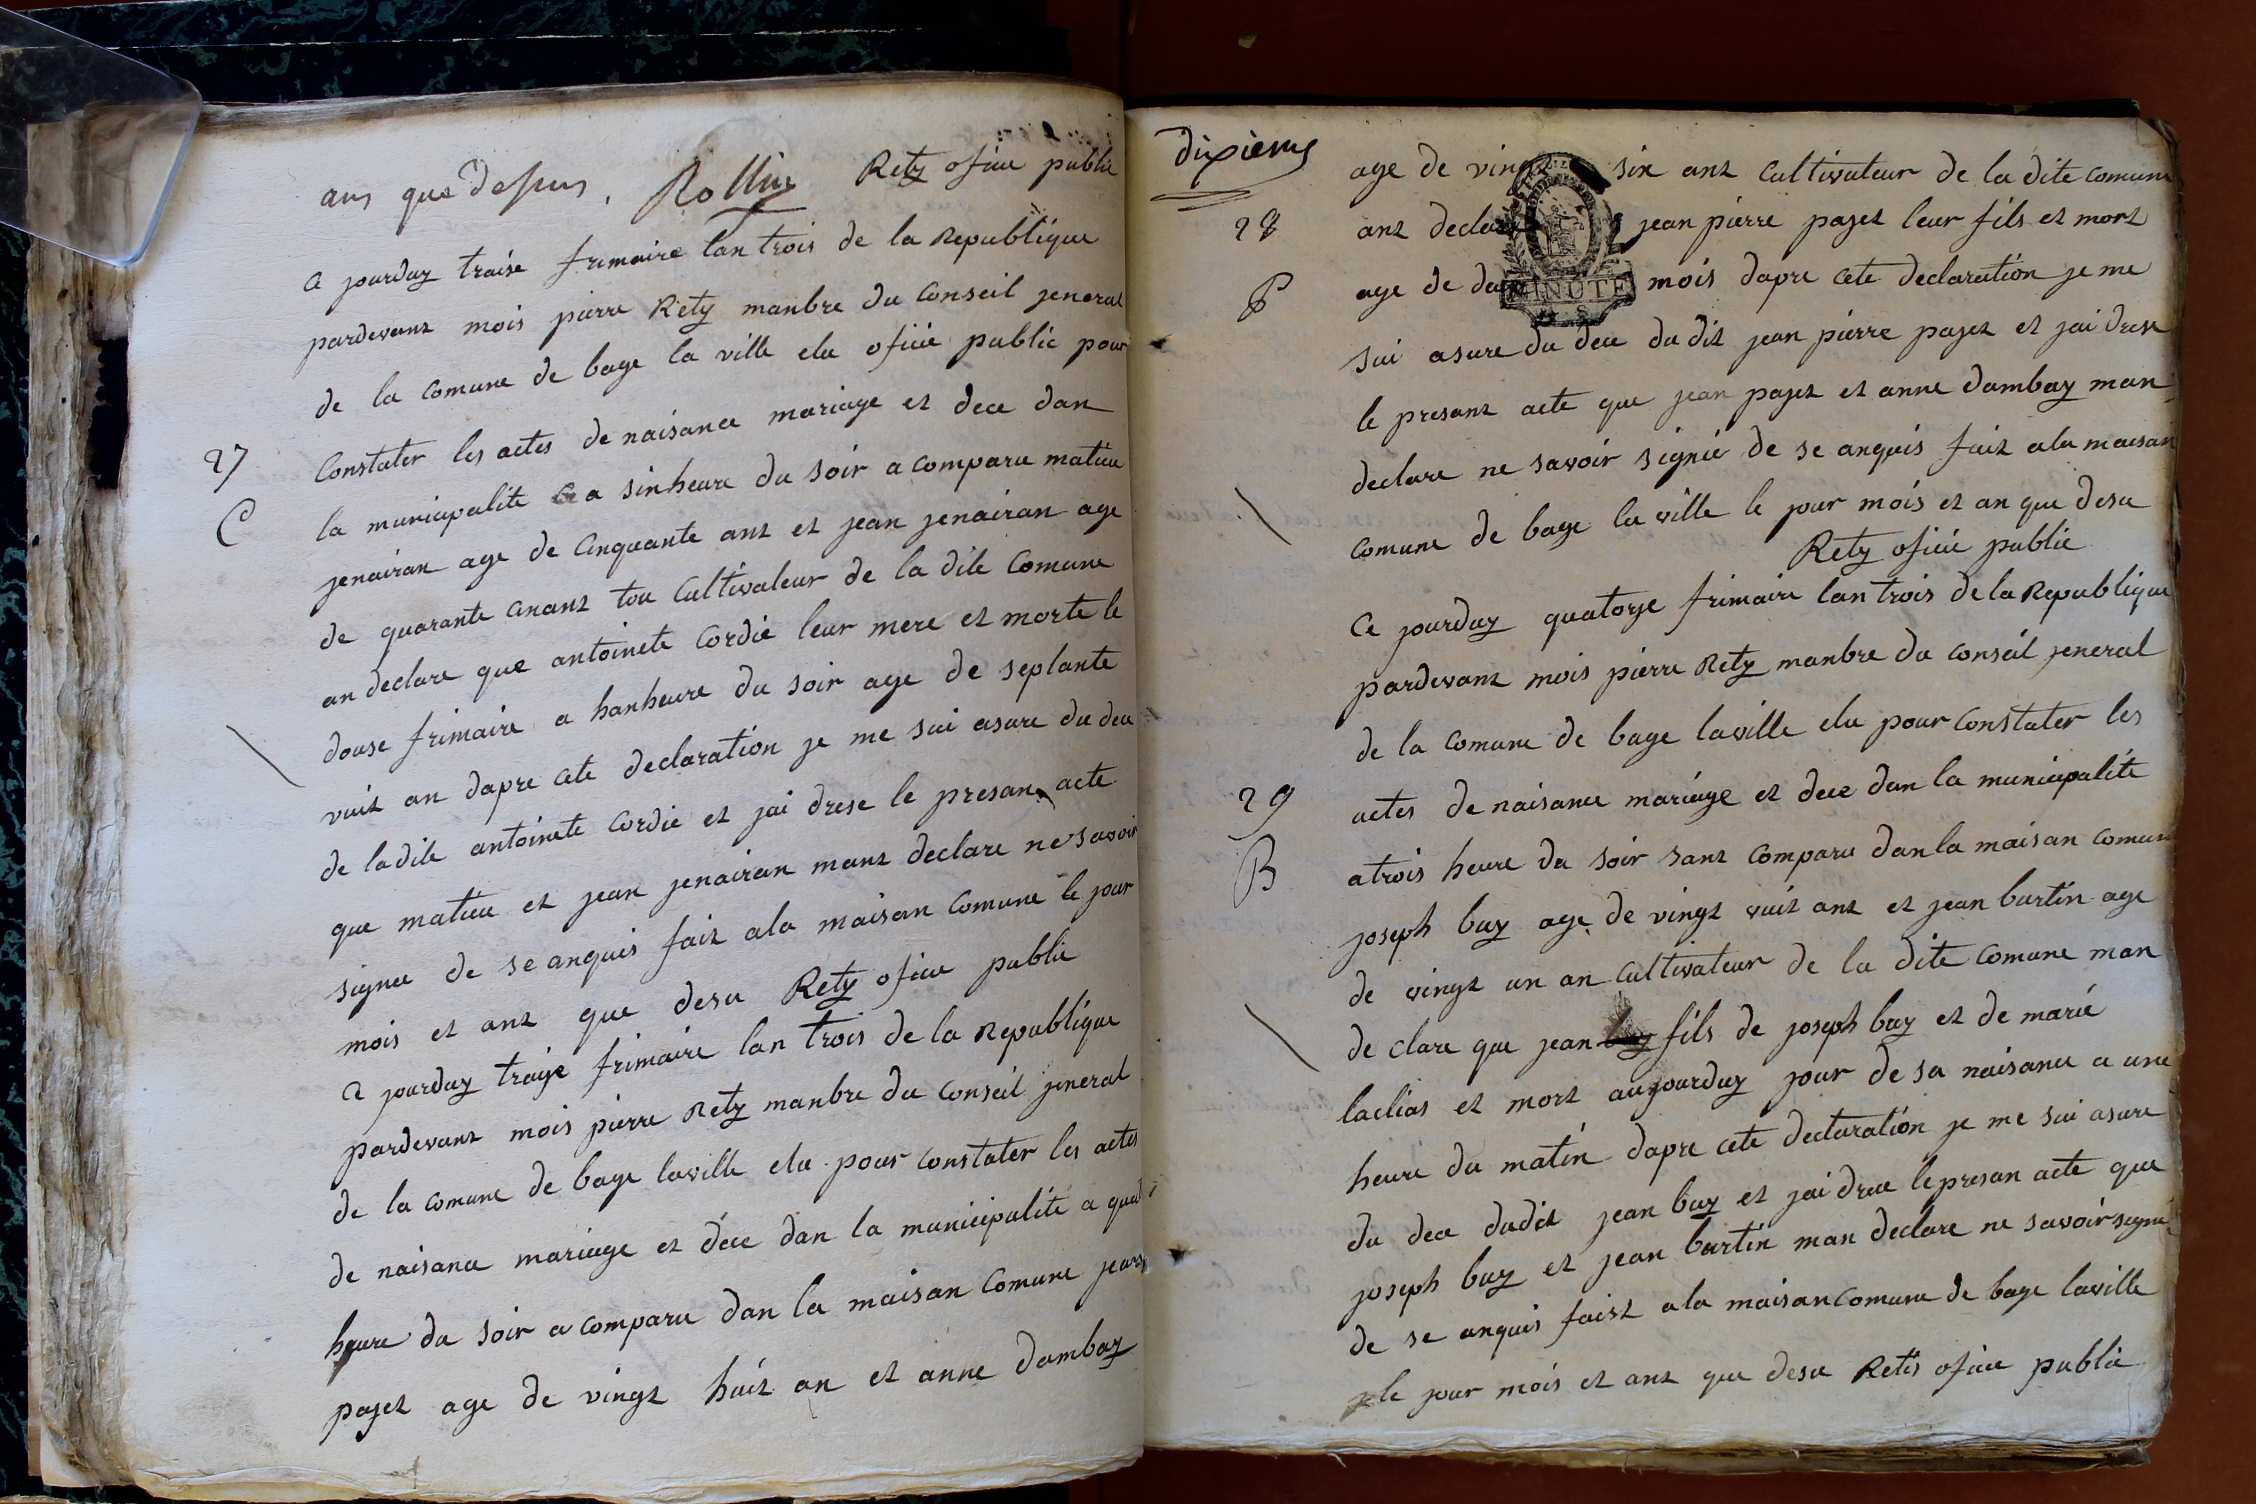 ans que dessus. Rollin Rety ofice public
ce jourduy traise frimaire lan trois de la Republique
pardevant mois pierre Rety manbre du Conseil jeneral
de la comune de bage la ville elu ofice public pour
27
Constater les actes de naisance mariage et dece dan
C
la municipalite a sinheure du soir a comparu matieu
jenairan age de cinquante ant et jean jenairan age
de quarante cinant tou Cultivateur de la dite Comune
an declare que antoinete Cordie leur mere et morte le
douse frimaire a hanheure du soir age de seplante
vuit an dapre cete declaration je me sui asure du dece
de ladite antoinete Cordie et jai drese le presan acte
que matieu et jean jenairan mant declare ne savoir
signee de se anquis fait ala maisan Comune le jour
mois et ant que desu Rety ofice public
ce jourduy traize frimaire lan trois de la Republique
pardevant mois pierre Rety manbre du Conseil jeneral
de la comune de bage laville elu pour constater les actes
de naisance mariage et dece dan la municipalite a quat
heure du soir a comparu dan la maisan Comune jean
pajet age de vingt huit an et anne dambay
dixieme
age de vingt six ant Cultivateur de la dite comune
28
ant declare jean pierre pajet leur fils et mort
P
age de mois dapre cete declaration je me
MINUTE
sui asure du dece du dit jean pierre pajet et jai drese
le presant acte que jean pajet et anne dambay man
declare ne savoir signié de se anquis fait ala maisan
comune de bage la ville le jour mois et an que desu
Rety ofice public
Ce jourduy quatorze frimaire lan trois de la Republique
pardevant mois pierre Rety manbre du conseil jeneral
de la comune de bage laville elu pour Constater les
29
actes de naisance mariage et dece dan la municipalité
B
a trois heure du soir sant comparu dan la maisan comune
joseph buy age de vingt vuit ant et jean burtin age
de vingt un an Cultivateur de la dite comune man
de clare que jean fils de joseph buy et de marie
laclias et mort aujourduy jour de sa naisance a une
heure du matin dapre cete declaration je me sui asure
du dece dudit jean buy et jai drece le presan acte que
joseph buy et jean burtin man declare ne savoir signé
de se anquis faist ala maisan comune de bage laville
le jour mois et ant que desu Retis ofice public